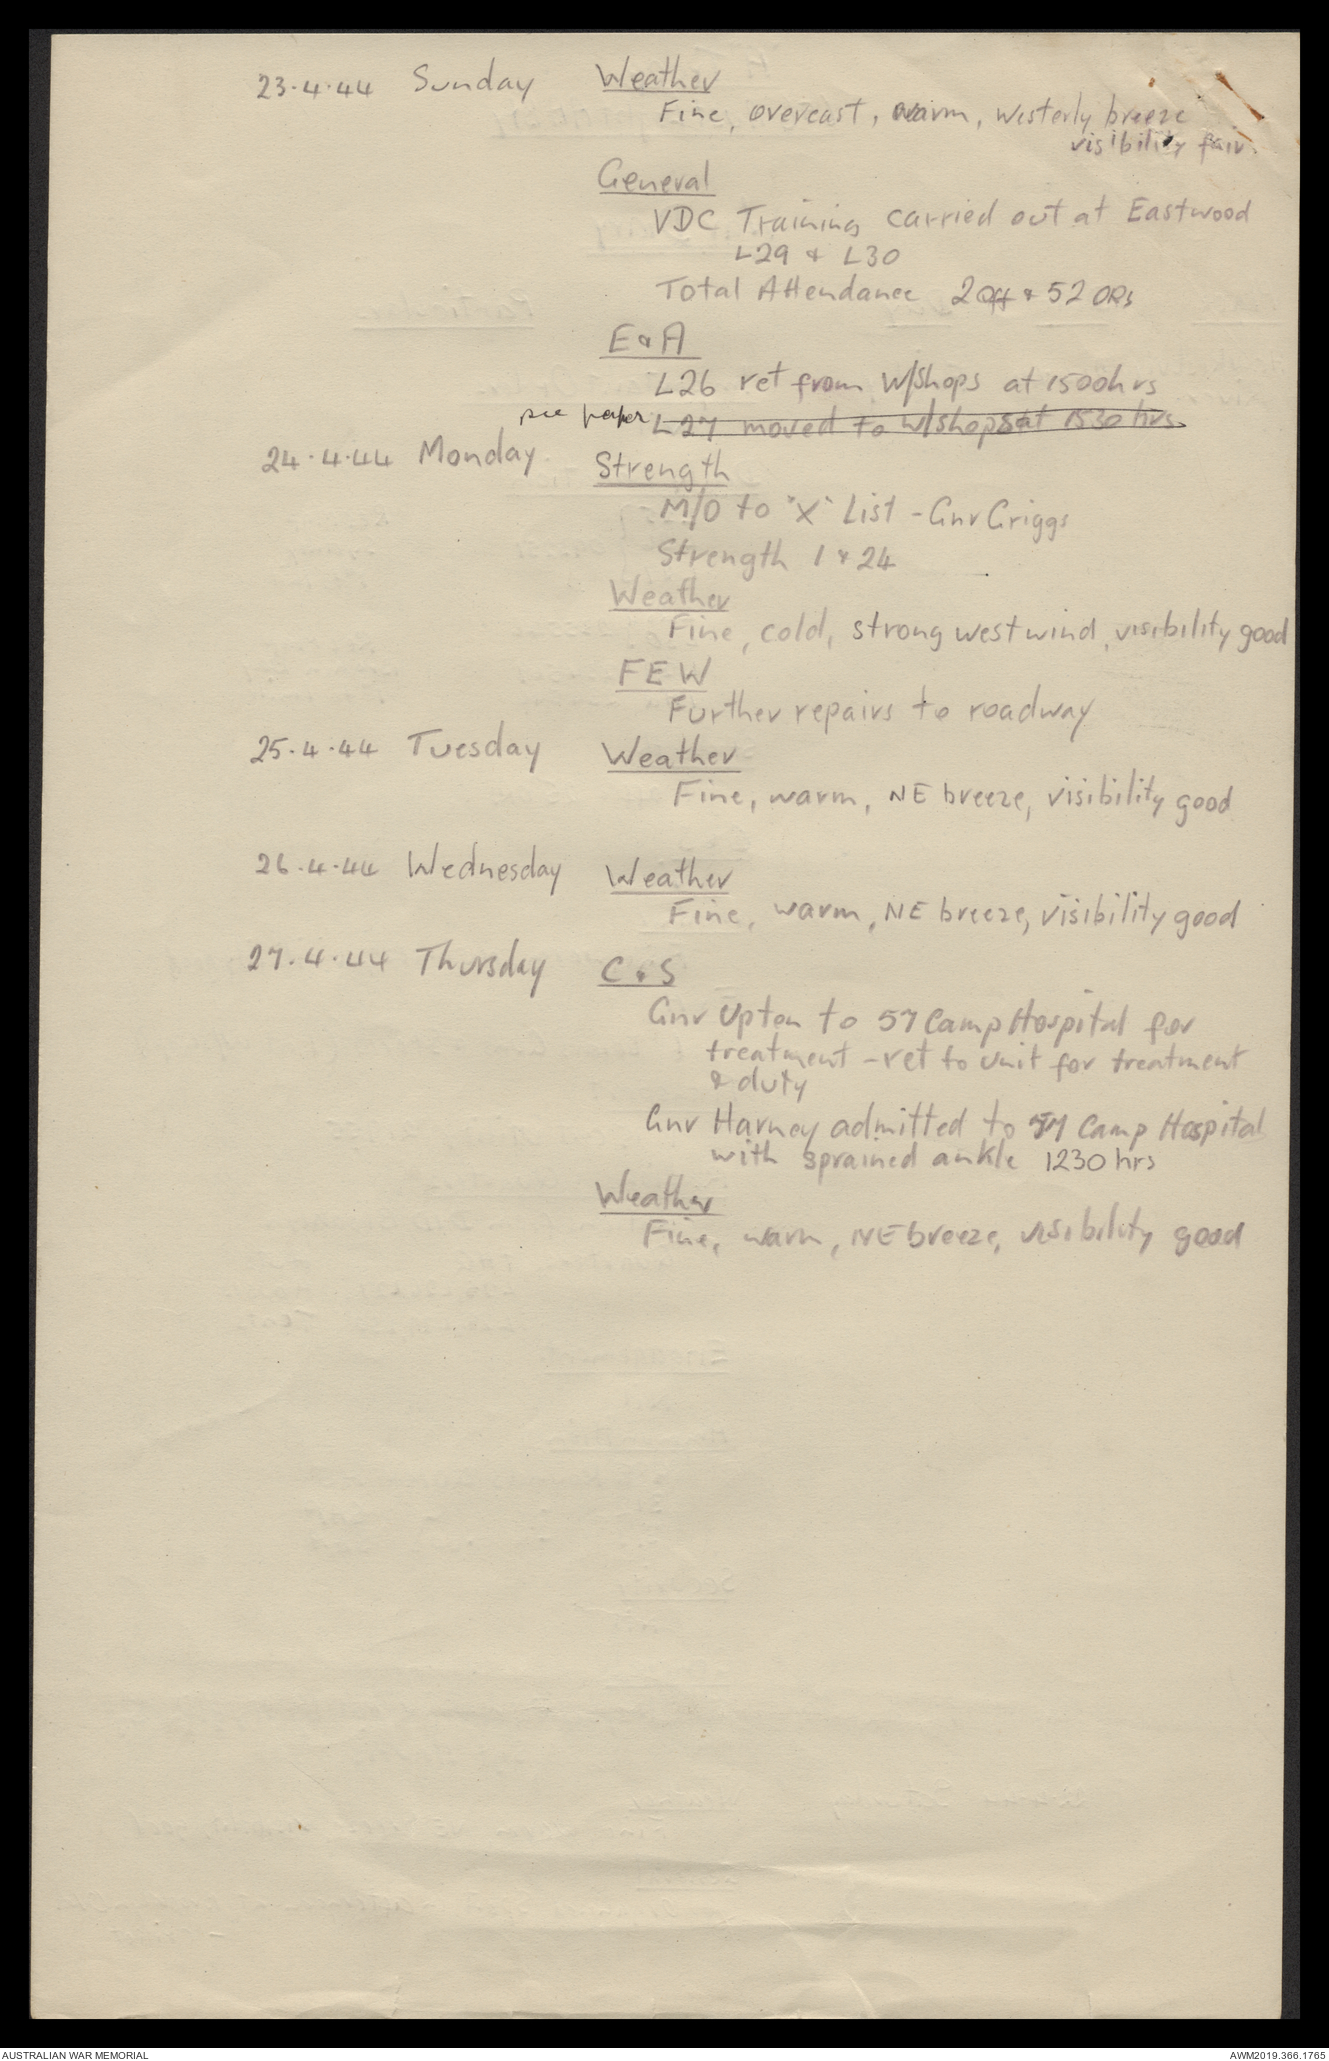 23.4.44 Sunday Weather
Fine, overcast, warm, westerly breeze
visibility fair.
General
VDC Training carried out at Eastwood
L29 & L30
Total Attendance 2 Off & 52 ORs
E & A
L26 ret from W/Shops at 1500hrs
see paper L27 moved to W/shops at 1530 hrs.
24.4.44 Monday. Strength
M/O to "X" List - Gnr Griggs
Strength 1 & 24
Weather
Fine, cold, strong west wind, visibility good
FEW
Further repairs to roadway
25.4.44 Tuesday Weather
Fine, warm, NE breeze, visibility good
26.4.44 Wednesday Weather
Fine, warm, NE breeze, visibility good
27.4.44 Thursday C & S
Gnr Upton to 57 Camp Hospital for
treatment - ret to unit for treatment
& duty
Gnr Harney admitted to 57 Camp Hospital
with sprained ankle 1230 hrs
Weather
Fine, warm, NE breeze, visibility good
AUSTRALIAN WAR MEMORIAL AWM2019.366.1765